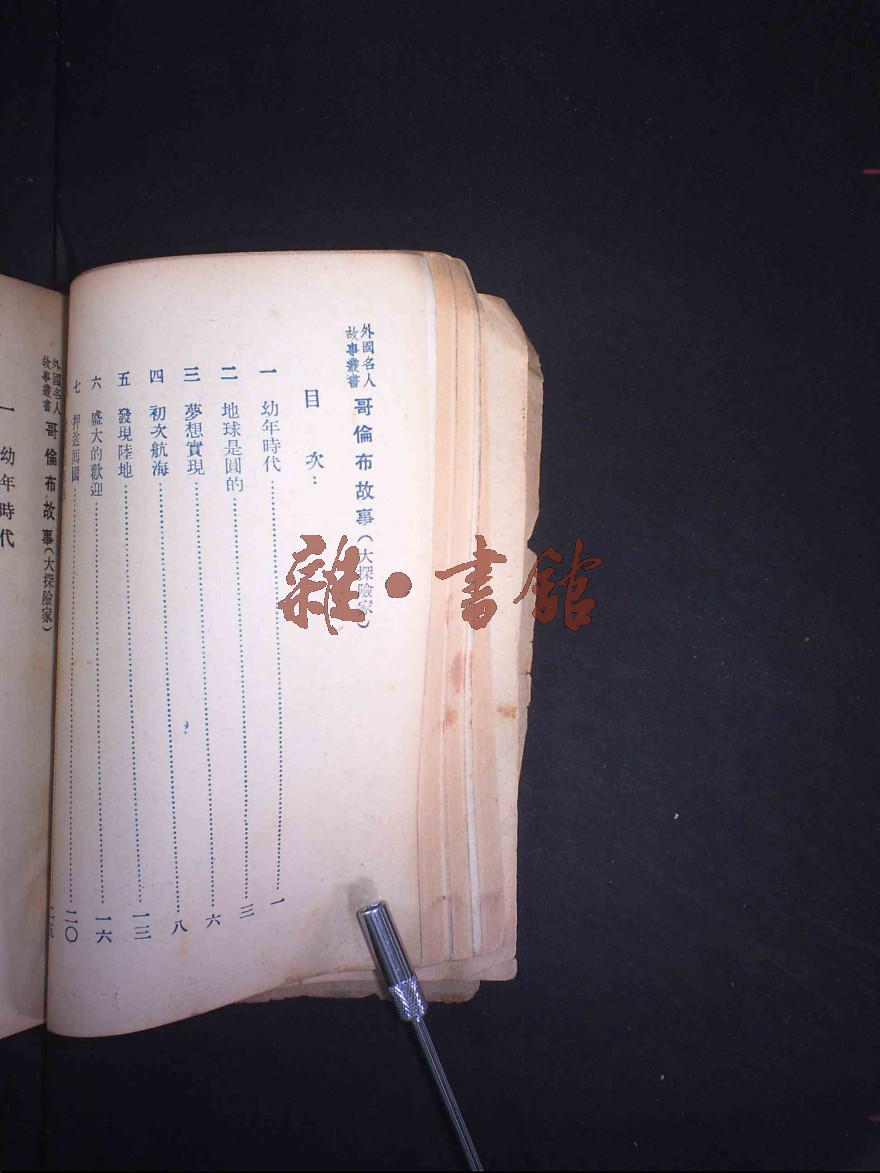 外國名人
故事叢書
哥倫布故事(大探險家)
目次:
一 幼年時代……一
二 地球是圓的……三
三 夢想實現……六
四 初次航海……八
五 發現陸地……一三
六 盛大的歡迎……一六
七 押送回國……二〇
外國名人
故事叢書
哥倫布故事(大探險家)
一 幼年時代
雜·書館